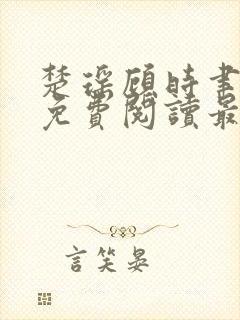 楚瑤顧時書
免費閱讀最
言笑晏